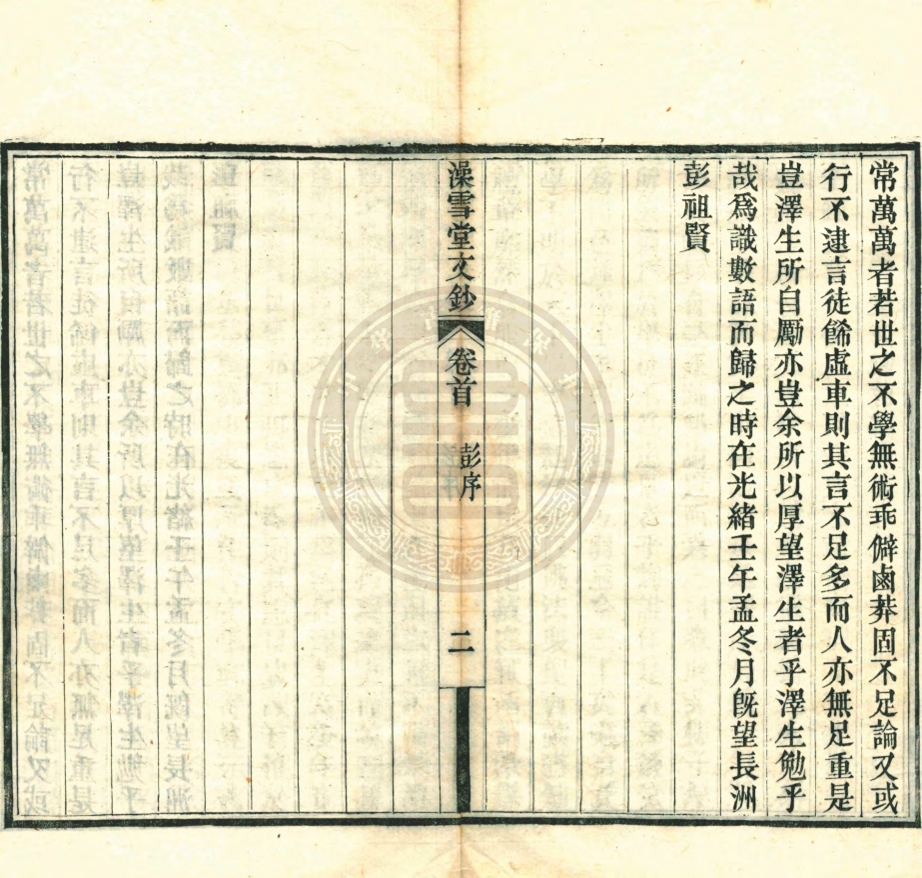 常萬萬者若世之不學無術乖僻鹵莽固不足論又或
行不逮言徒餙虛車則其言不足多而人亦無足重是
豈澤生所自勵亦豈余所以厚望澤生者乎澤生勉乎
哉爲識數語而歸之時在光緒壬午孟冬月旣望長洲
彭祖賢
澡雪堂文鈔
卷首
彭序
二